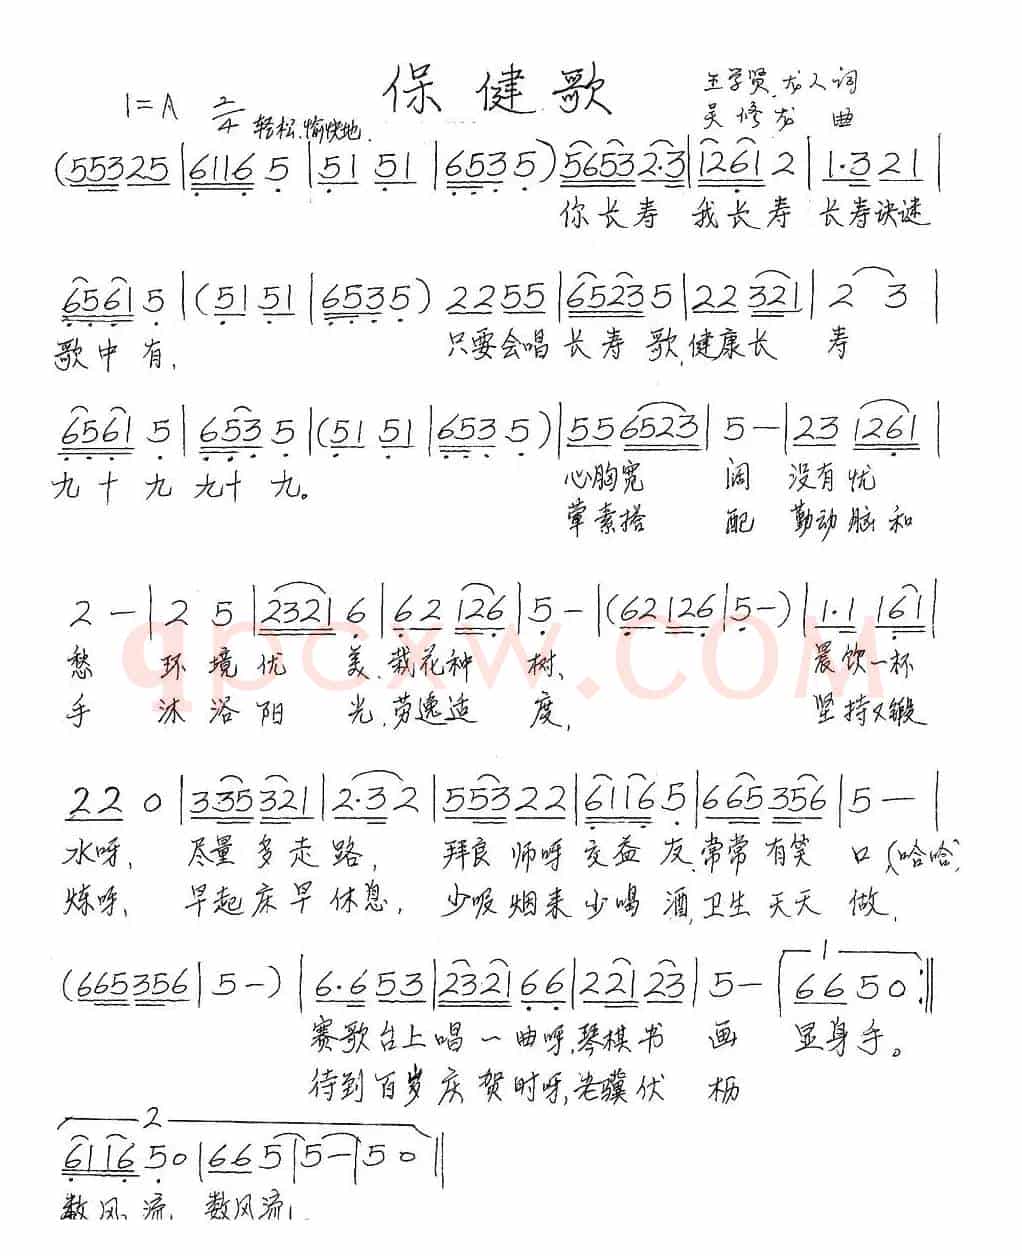 保健歌
王学贤、龙人词
1=A 2/4 轻松、愉快地.
吴修龙 曲
(55325|61165|5151|6535)56532·3|12612|1·321|
你长寿 我长寿 长寿诀谜
65615|(5151|6535)2255|65235|22321|23|
歌中有, 只要会唱长寿歌,健康长寿
65615|6535|(5151|6535)|556523|5-|231261|
九十九 九十九。 心胸宽阔 没有忧
荤素搭配 勤动脑和
2-|25|23216|62126|5-|(62126|5-)|1·1161|
愁 环境优美.栽花种树、 晨饮一杯
手 沐浴阳光,劳逸适度, 坚持又锻
220|335321|2·32|55322|61165|665356|5-|
水呀、 尽量多走路, 拜良师呀交益友.常常有笑口(哈哈)
炼呀、 早起床早休息, 少吸烟来少喝酒,卫生天天做,
(665356|5-)|6·653|232166|22123|5-|1 6650:‖
赛歌台上唱一曲呀,琴棋书画 显身手。
待到百岁庆贺时呀,老骥伏枥
2
611650|665|5-|50‖
数风流, 数风流!
qpcxw.com